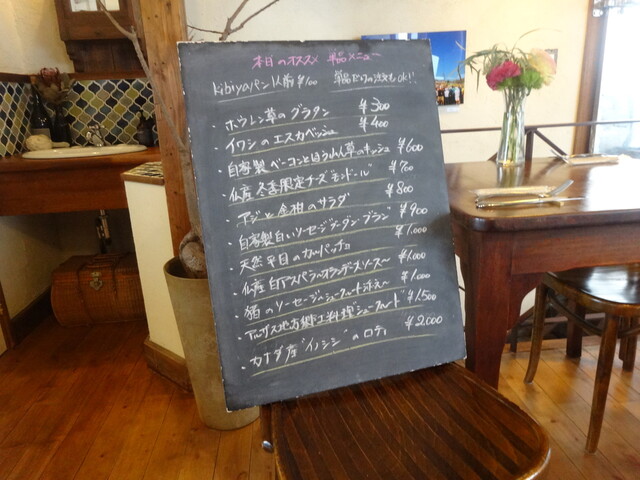 本日のオススメ 単品メニュー
Kibiyaパン1人前 ¥100 単品だけの注文もok!!
・ホウレン草のグラタン ¥300
・イワシのエスカベッシュ ¥400
・自家製ベーコンとほうれん草のキッシュ ¥600
・仏産 冬季限定チーズ"モンドール" ¥700
・アジと金柑のサラダ ¥800
・自家製白いソーセージ"ブーダン・ブラン" ¥900
・天然平目のカルパッチョ ¥1,000
・仏産白アスパラ〜オランデーズソース〜 ¥1,000
・猪のソーセージ〜シュークルート添え〜 ¥1,000
・アルザス地方郷土料理"シュークルート" ¥1,500
・カナダ産"イノシシ"のロティ ¥2,000